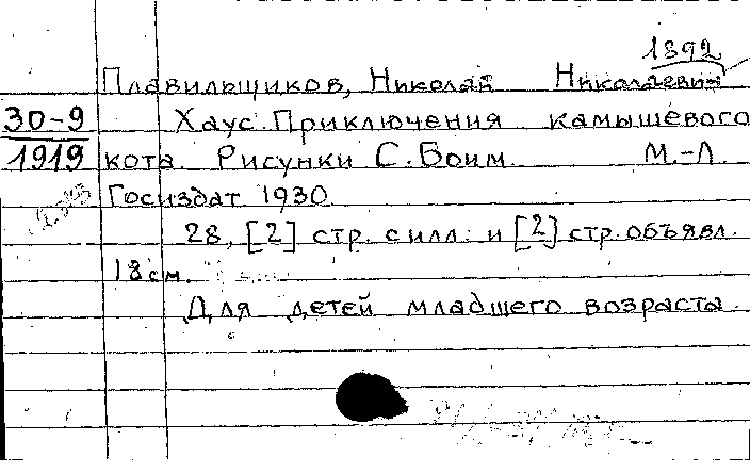 1892
Плавильщиков, Николай Николаевич
30-9 Хаус. Приключения камышевого
1919 кота. Рисунки С. Боим. М.-Л.
Госиздат 1930.
28, [2] стр. с илл. и [2] стр. объявл.
18 см.
Для детей младшего возраста.